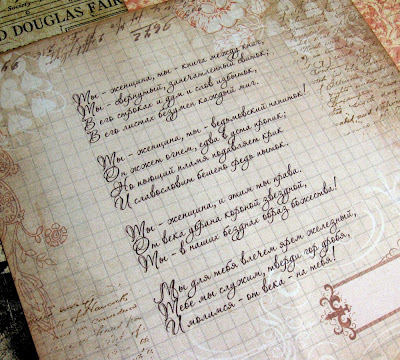 Society
D DOUGLAS FAIR
Ты - женщина, ты - книга между книг,
Ты - свернутый, запечатленный свиток;
В его строках и дум и слов избыток,
В его листах безумен каждый миг.
Ты - женщина, ты - ведьмовский напиток!
Он жжет огнем, едва в уста проник;
Но пьющий пламя подавляет крик
И славословит бешено средь пыток.
Ты - женщина, и этим ты права.
От века убрана короной звездной,
Ты - в наших безднах образ божества!
Мы для тебя влечем ярем железный,
Тебе мы служим, тверди гор дробя,
И молимся - от века - на тебя!